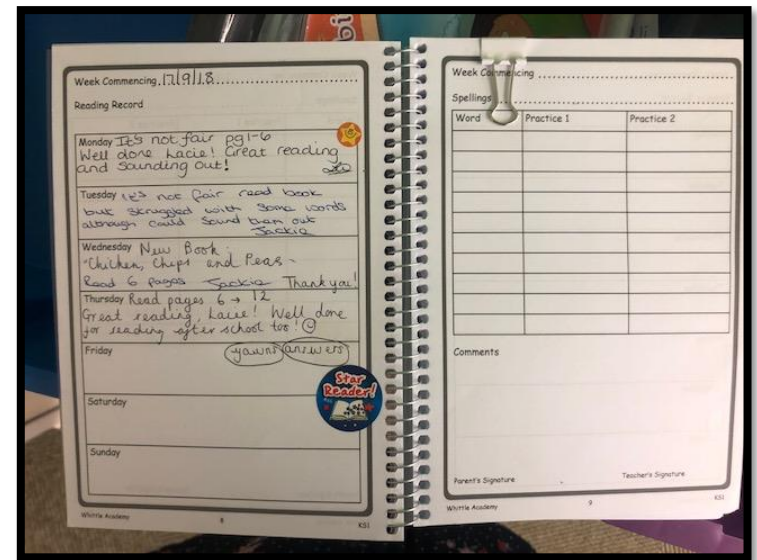 Week Commencing 17/9/18
Reading Record
Monday It's not fair pg1-6
Well done Lacie! Great reading
and sounding out!
Tuesday It's not fair read book
but struggled with some words
although could sound them out
Jackie
Wednesday New Book.
"Chicken, Chips and Peas"
Read 6 pages Jackie Thank you!
Thursday Read pages 6 → 12
Great reading, Lacie! Well done
for reading after school too!
Friday yawns answers
Star
Reader!
Saturday
Sunday
Whittle Academy 8 KS1
Week Commencing
Spellings
Word Practice 1 Practice 2
Comments
Parent's Signature Teacher's Signature
Whittle Academy 9 KS1